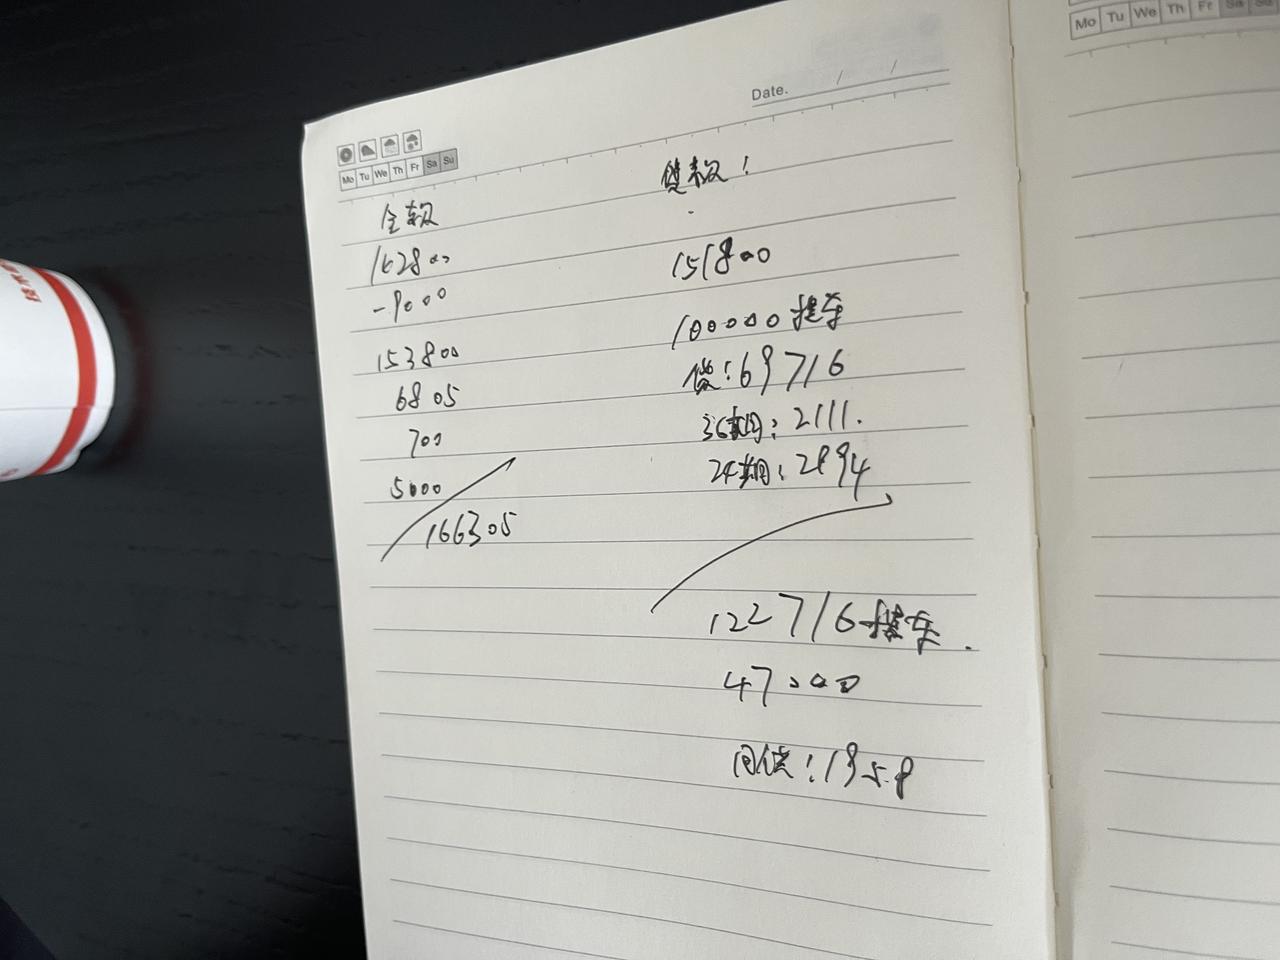 Mo Tu We Th Fr Sa Su
Date. / /
全款
162800
-9000
153800
6805
700
5000
166305
贷款:
151800
100000提车
贷:69716
36期:2111.
24期:2994
122716提车.
47000
月供:1958
Mo Tu We Th Fr Sa Su